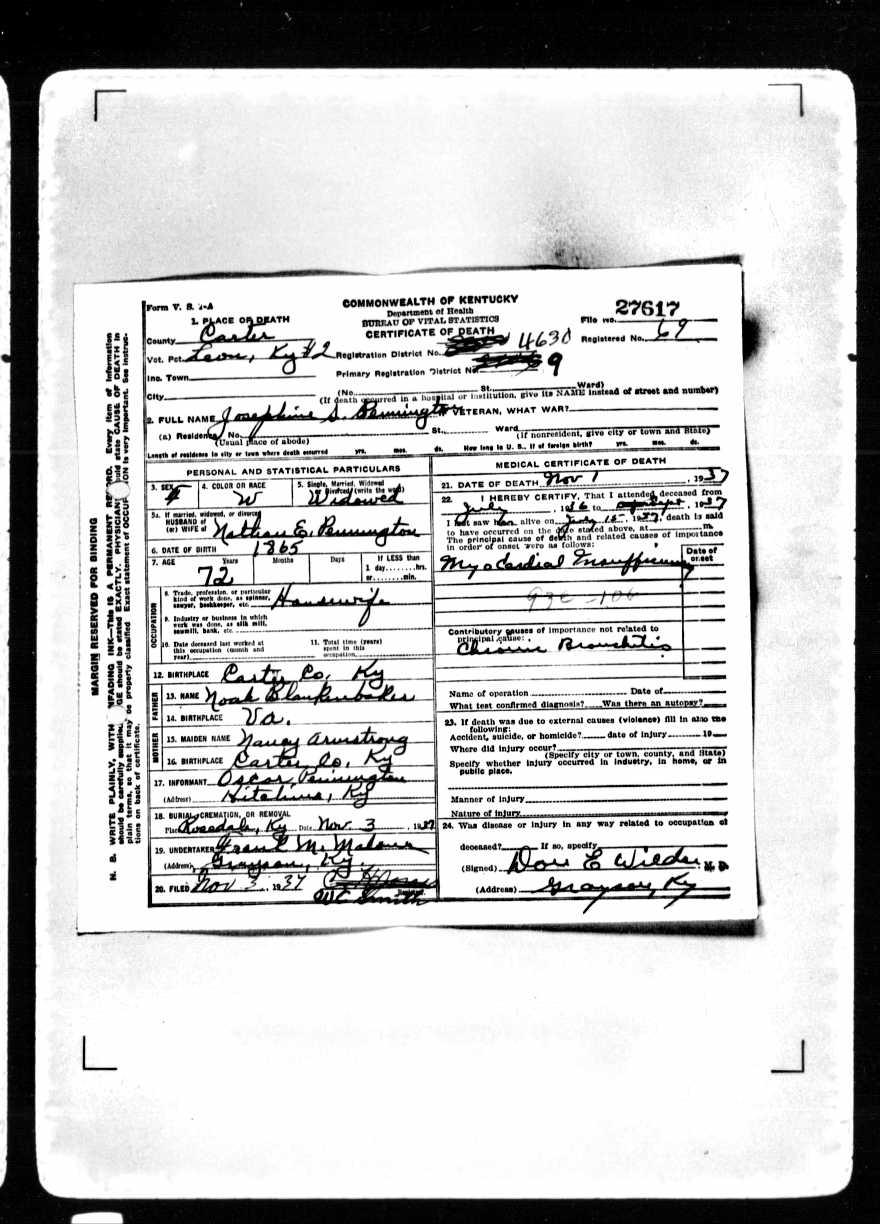 Form V. S. 1-A
COMMONWEALTH OF KENTUCKY
Department of Health
BUREAU OF VITAL STATISTICS
CERTIFICATE OF DEATH
27617
File No.
Registered No. 69
1. PLACE OF DEATH
County Carter
Vot. Pct. Leon, Ky #2 Registration District No. 4630
Inc. Town Primary Registration District No. 9
City (No. St. Ward)
(If death occurred in a hospital or institution, give its NAME instead of street and number)
2. FULL NAME Josephine S. Pennington VETERAN, WHAT WAR?
(a) Residence No. St., Ward
(Usual place of abode) (If nonresident, give city or town and State)
Length of residence in city or town where death occurred yrs. mos. ds. How long in U. S., if of foreign birth? yrs. mos. ds.
PERSONAL AND STATISTICAL PARTICULARS
3. SEX F 4. COLOR OR RACE W 5. Single, Married, Widowed or Divorced (write the word) Widowed
5a. If married, widowed, or divorced
HUSBAND of
(or) WIFE of Nathan E. Pennington
6. DATE OF BIRTH 1865
7. AGE Years Months Days If LESS than
72 1 day........hrs.
or........min.
OCCUPATION
8. Trade, profession, or particular
kind of work done, as spinner,
sawyer, bookkeeper, etc. Housewife
9. Industry or business in which
work was done, as silk mill,
sawmill, bank, etc.
10. Date deceased last worked at
this occupation (month and
year)
11. Total time (years)
spent in this
occupation
12. BIRTHPLACE Carter Co. Ky
FATHER
13. NAME Noah Blankenbaker
14. BIRTHPLACE Va.
MOTHER
15. MAIDEN NAME Nancy Armstrong
16. BIRTHPLACE Carter Co. Ky
17. INFORMANT Oscar Pennington
(Address) Hitchins, Ky
18. BURIAL, CREMATION, OR REMOVAL
Place Rosedale, Ky Date Nov. 3, 1937
19. UNDERTAKER Frank M. Malone
(Address) Grayson, Ky
20. FILED Nov 3, 1937
WC Smith
Registrar.
MEDICAL CERTIFICATE OF DEATH
21. DATE OF DEATH Nov 1, 1937
22. I HEREBY CERTIFY, That I attended deceased from
July, 1936 to Sept, 1937
I last saw her alive on July 15, 1937, death is said
to have occurred on the date stated above, at m.
The principal cause of death and related causes of importance
in order of onset were as follows:
Date of
onset
Myocardial Insufficiency
93c - 106
Contributory causes of importance not related to
principal cause:
Chronic Bronchitis
Name of operation Date of
What test confirmed diagnosis? Was there an autopsy?
23. If death was due to external causes (violence) fill in also the
following:
Accident, suicide, or homicide? date of injury 19
Where did injury occur?
(Specify city or town, county, and State)
Specify whether injury occurred in industry, in home, or in
public place.
Manner of injury
Nature of injury
24. Was disease or injury in any way related to occupation of
deceased? If so, specify
(Signed) Don E Wilder M. D.
(Address) Grayson, Ky
MARGIN RESERVED FOR BINDING
N. B. WRITE PLAINLY, WITH UNFADING INK—THIS IS A PERMANENT RECORD. Every item of information
should be carefully supplied. AGE should be stated EXACTLY. PHYSICIANS should state CAUSE OF DEATH in
plain terms, so that it may be properly classified. Exact statement of OCCUPATION is very important. See instruc-
tions on back of certificate.